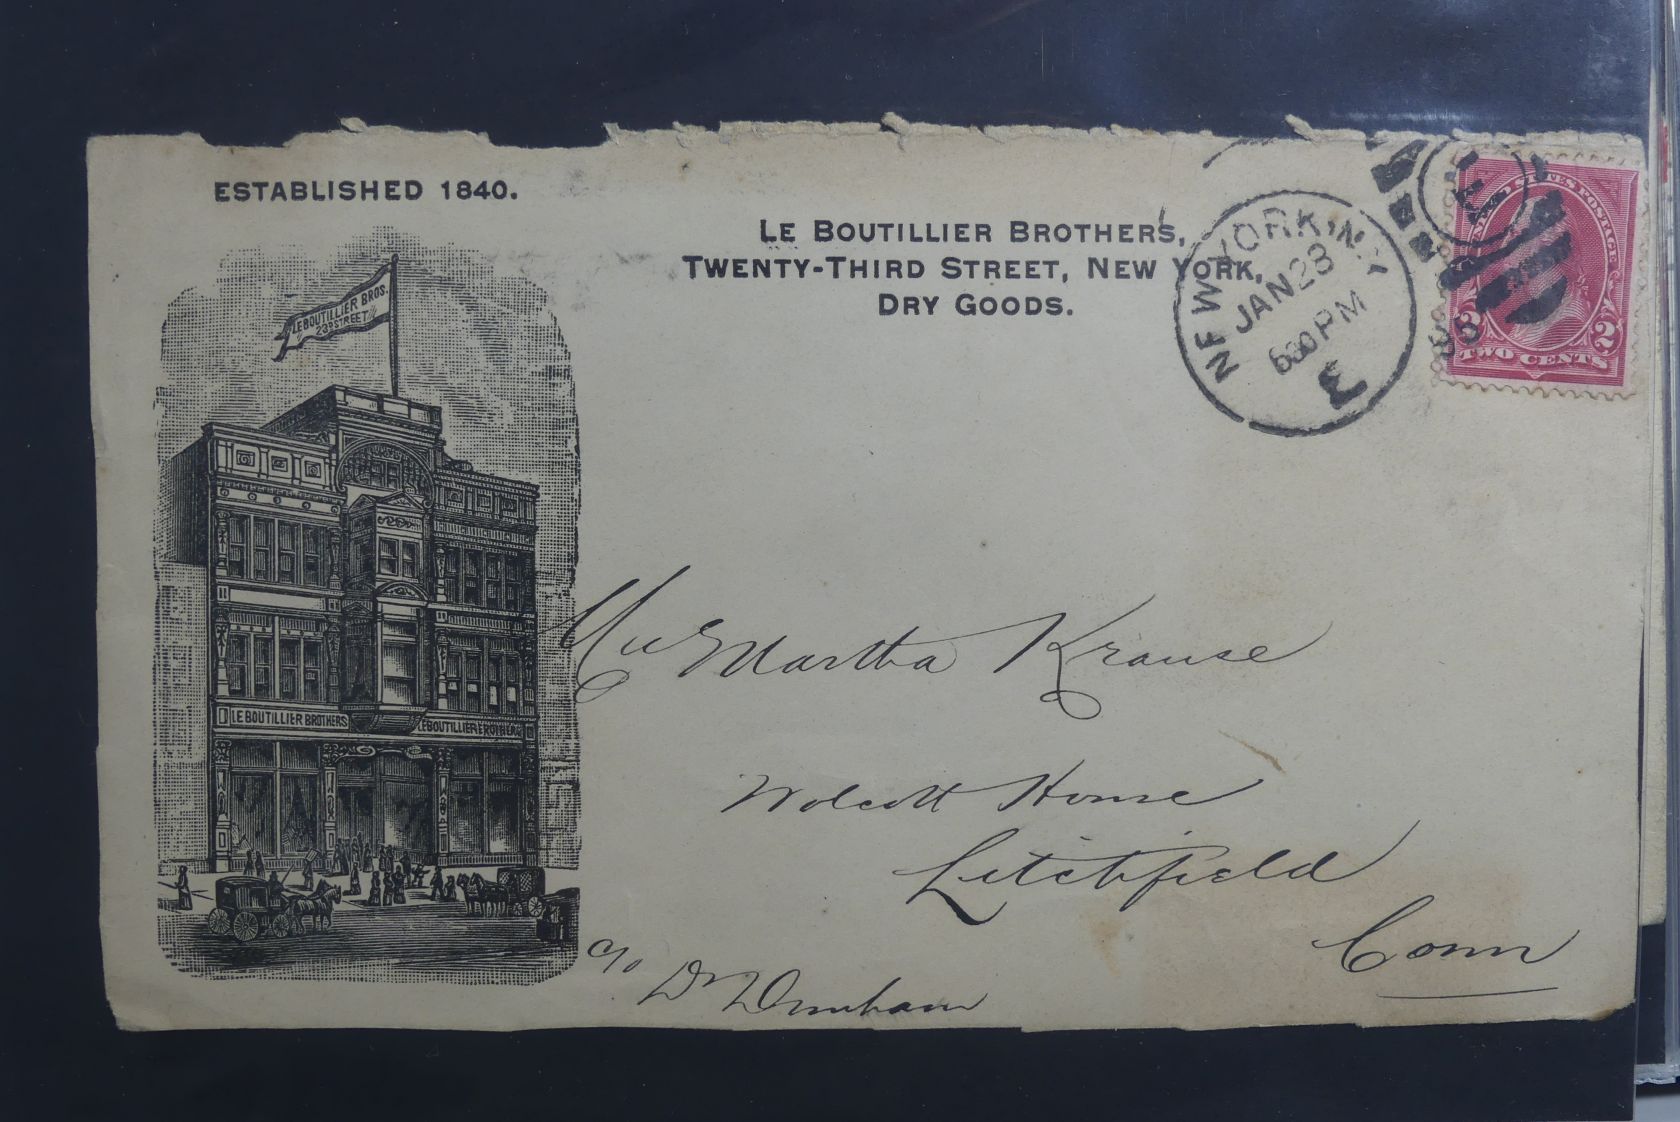 ESTABLISHED 1840.
LE BOUTILLIER BROTHERS,
TWENTY-THIRD STREET, NEW YORK,
DRY GOODS.
NEW YORK, N.Y.
JAN 28
630 PM
E
UNITED STATES POSTAGE
2 2
TWO CENTS
LE BOUTILLIER BROS.
23D STREET
LE BOUTILLIER BROTHERS
LE BOUTILLIER BROTHERS
Martha Krause
Wolcott House
Litchfield
Conn
c/o Dr